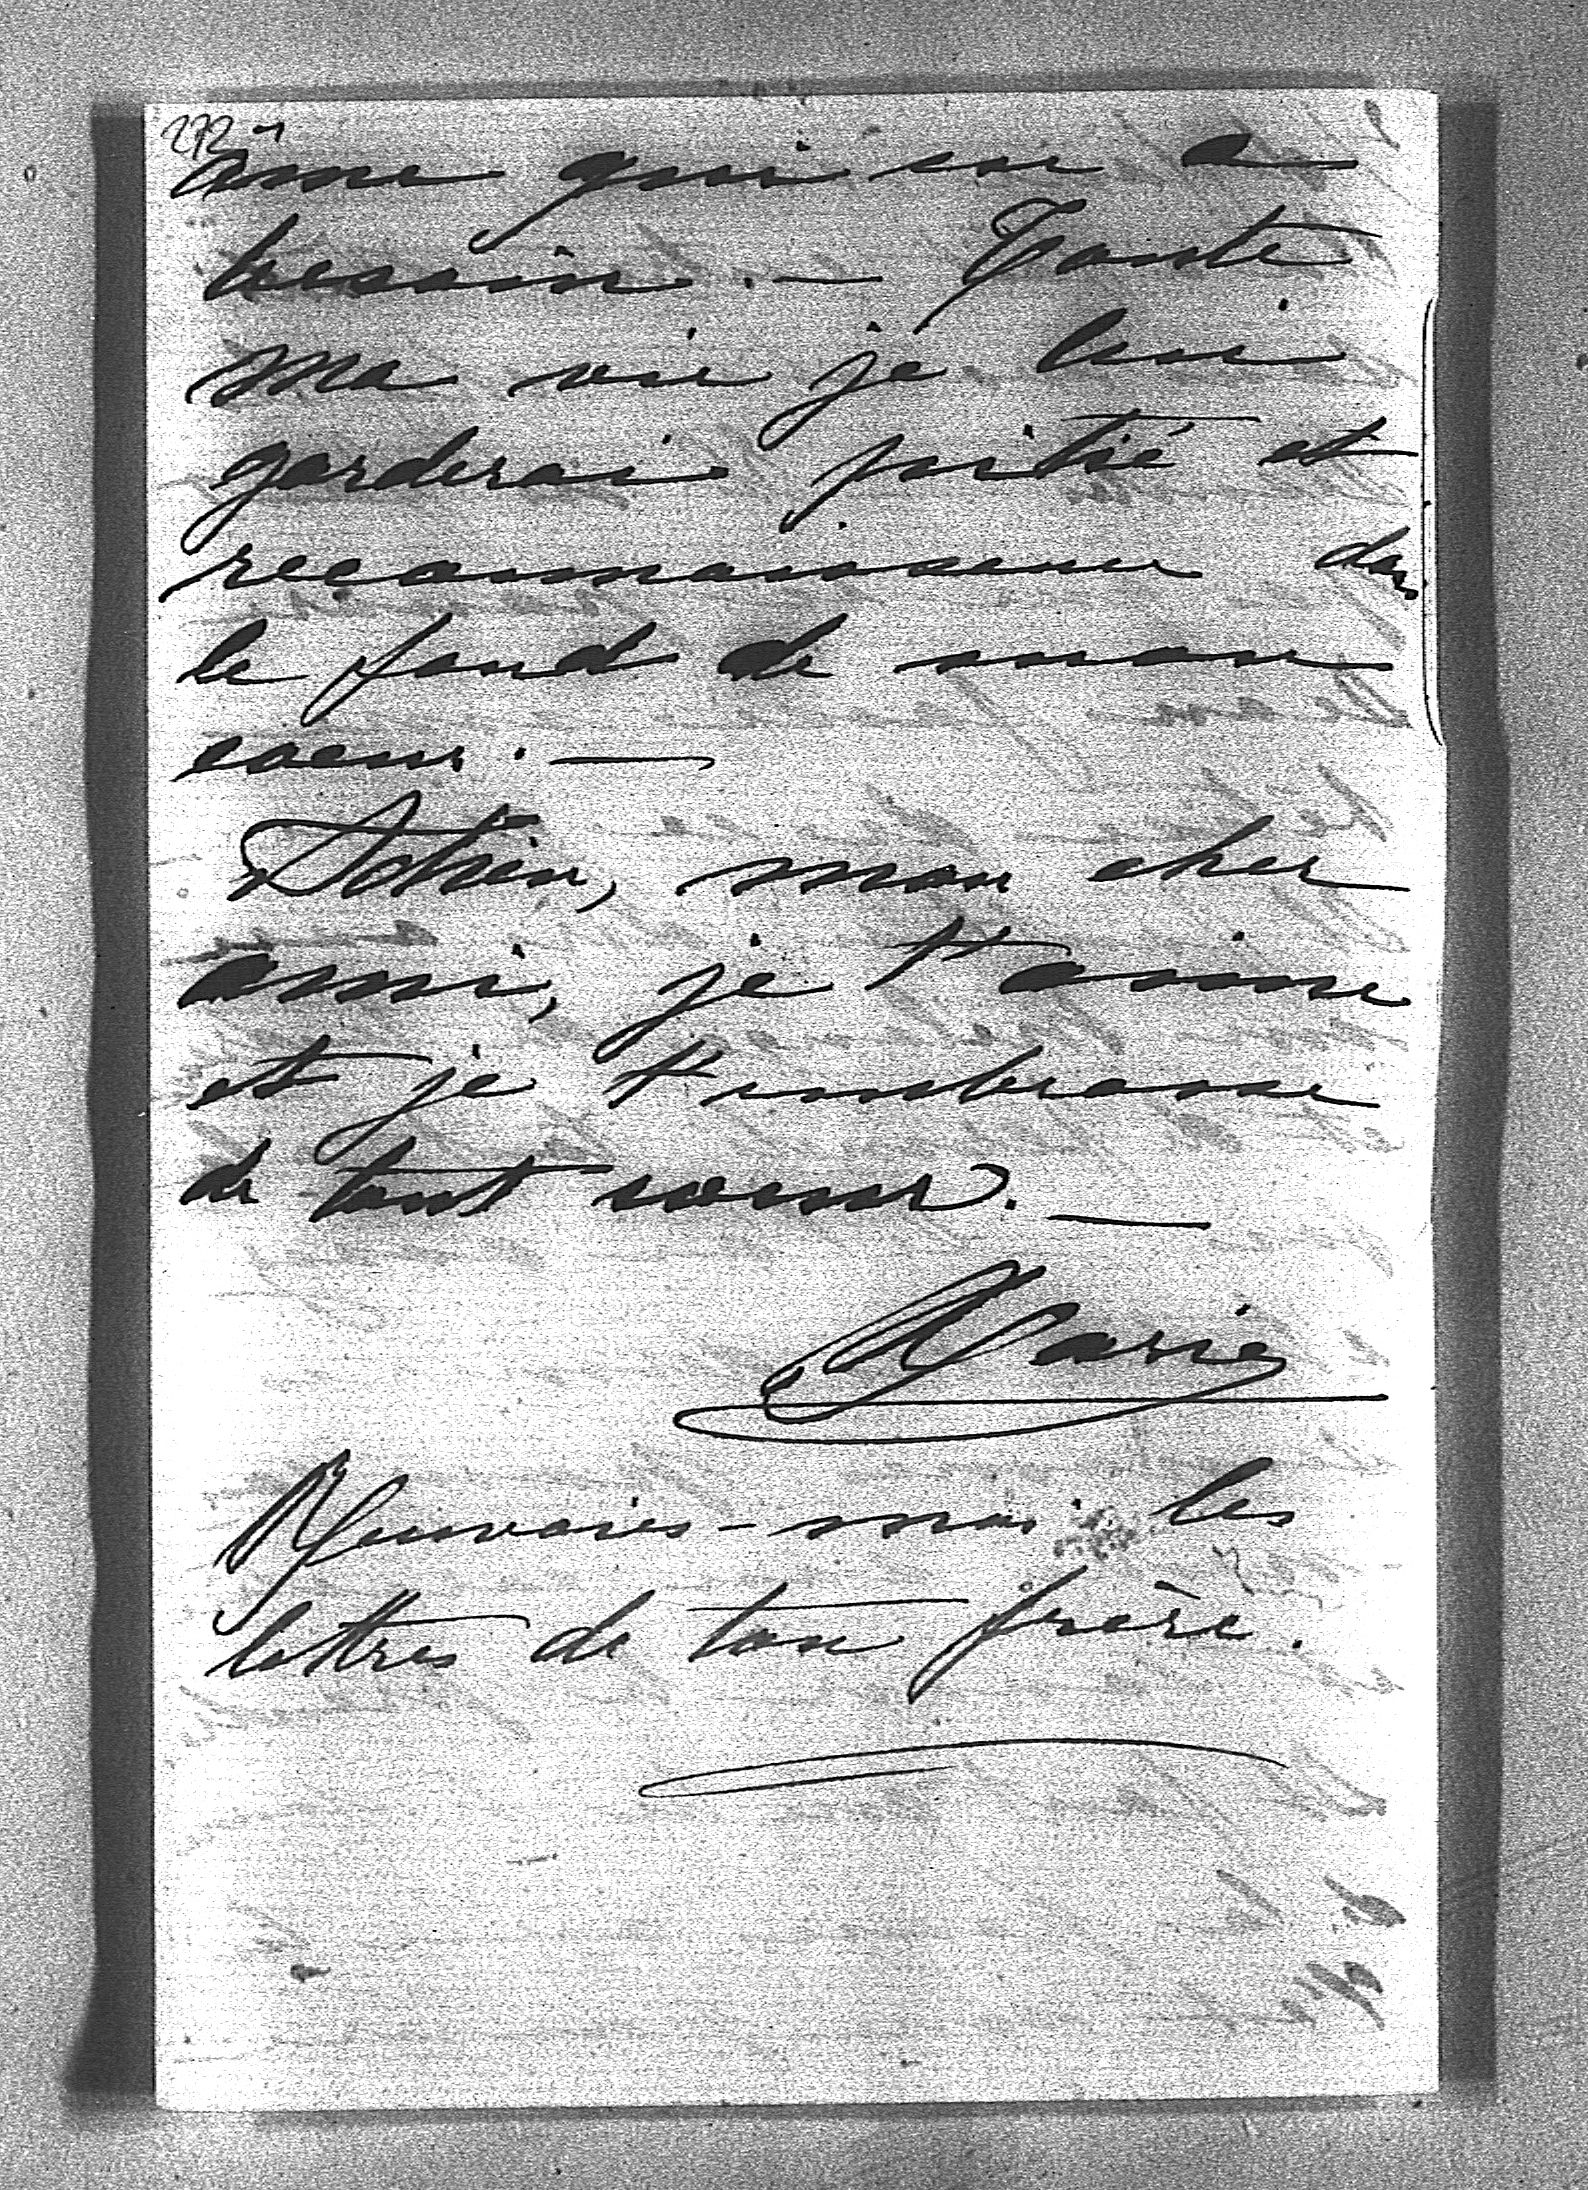 272
âme qui en a
besoin. — Toute
ma vie je lui
garderai pitié et
reconnaissance dans
le fond de mon
coeur. —
Adieu, mon cher
ami, je t'aime
et je t'embrasse
de tout coeur. —
Marie
Renvoies-moi les
lettres de ton frère.